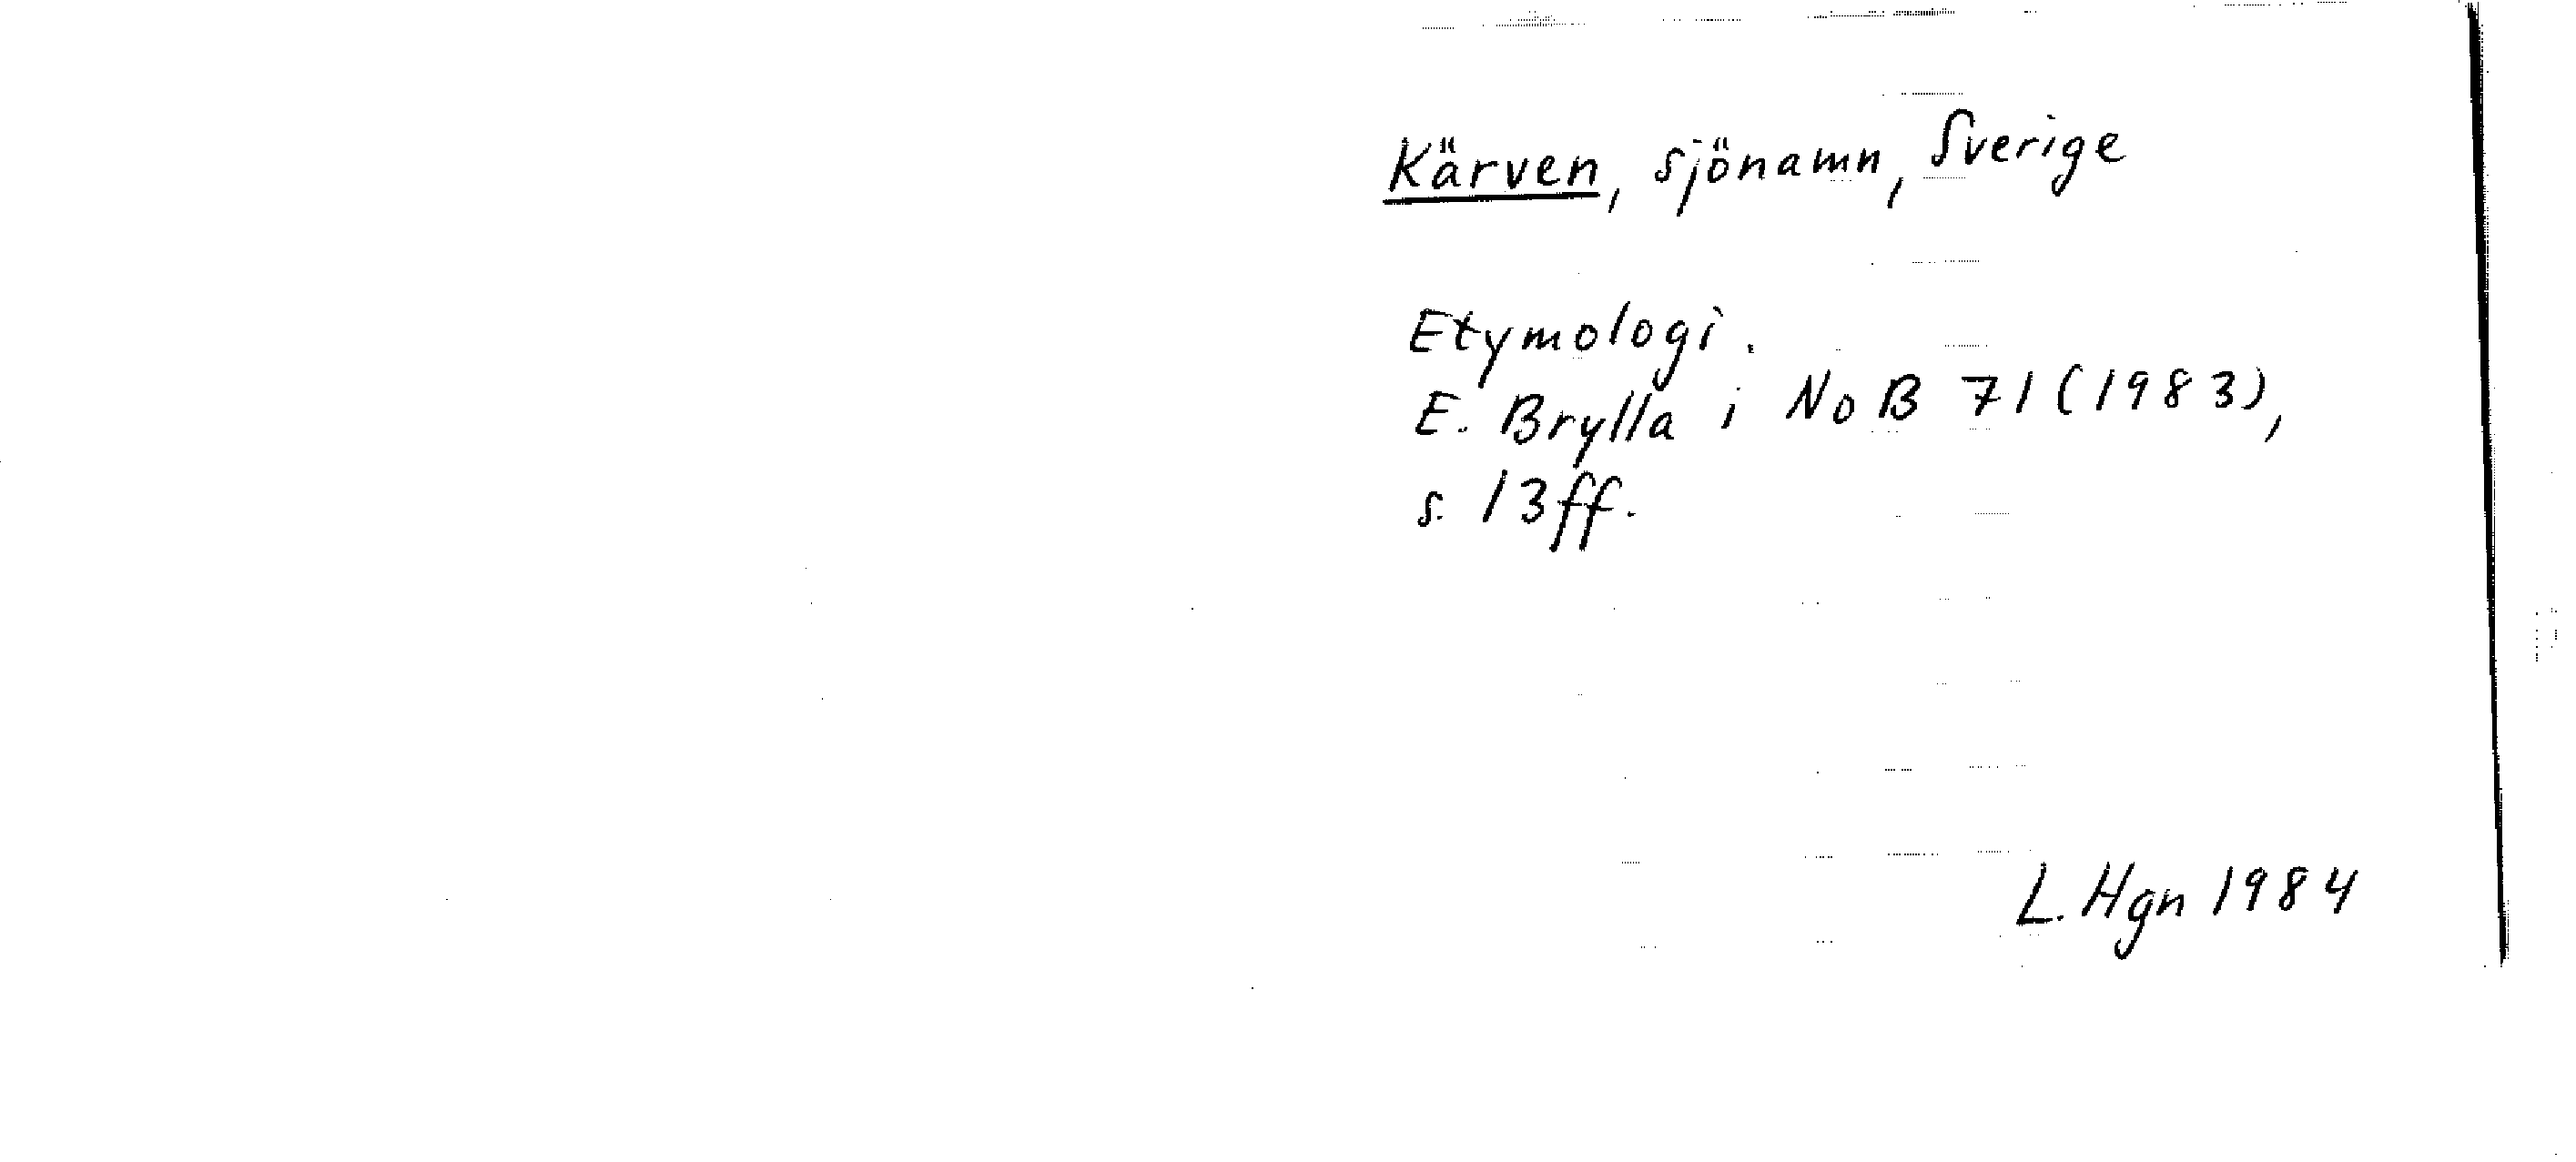 Kärven, sjönamn, Sverige
Etymologi.
E. Brylla i NoB 71 (1983),
s. 13ff.
L. Hgn 1984